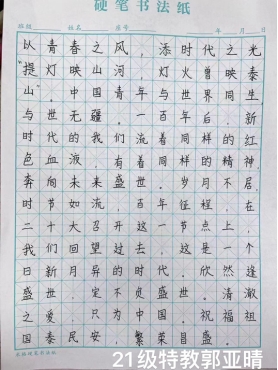 硬笔书法纸
班级 姓名 座号 年 月 日
以青春之风，添时代之光
“提灯映山河，灯火曾映泰
山”中国青年与世界同生
与世无疆。一百年后，新
时代的我们流着同样的红
色血液，有着同样的精神，
奔向未来盛世。岁月不居，
时节如流，百年征程，在
二十大召开这一节点上，
我们回望过去，这是一个
日新月异的时代。欣然逢
盛世，定不负盛世。清澈
之爱，只为中国。祝福祖
国泰民安，繁荣昌盛。
21级特教郭亚晴